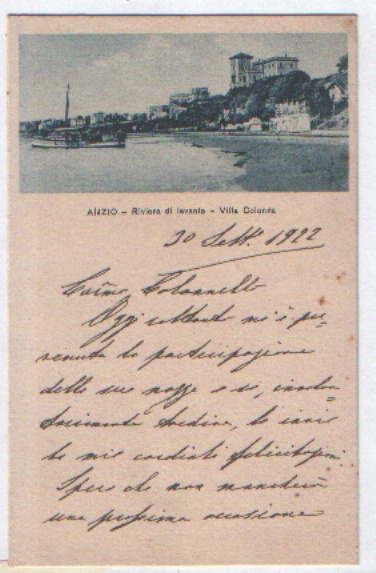 ANZIO - Riviera di levante - Villa Colonna
30 Sett. 1922
Car.mo Colonnello
Oggi soltanto mi è per-
venuta la partecipazione
delle sue nozze e se, involon-
tariamente tardivo, le invio
le mie cordiali felicitazioni.
Spero che non mancherà
una prossima occasione